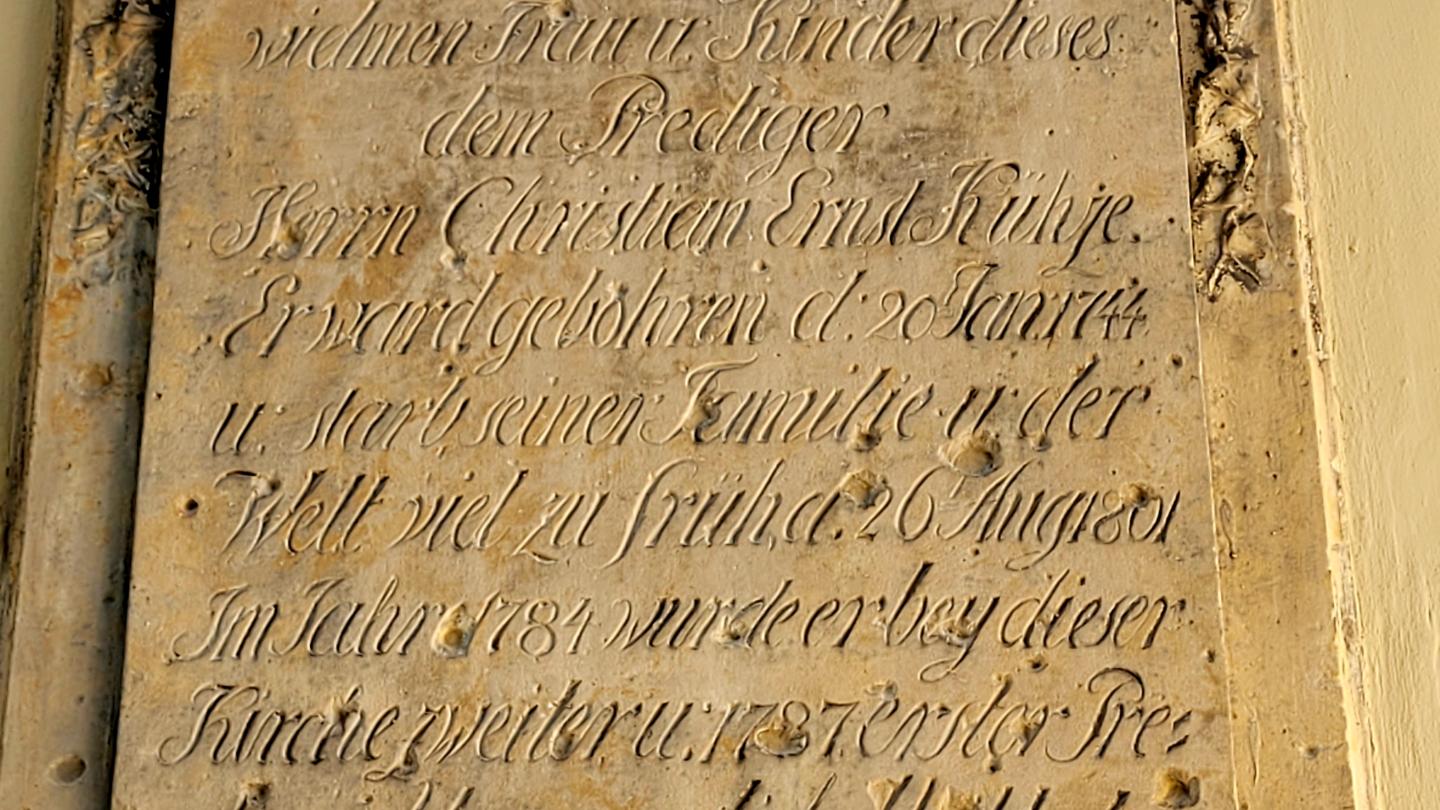 widmen Frau u. Kinder dieses
dem Prediger
Herrn Christian Ernst Kühze.
Er ward gebohren d: 20t Jan: 1744
u: starb seiner Familie u: der
Welt viel zu früh, d. 26t Aug: 1801
Im Jahr 1784 wurde er bey dieser
Kirche zweiter u: 1787 erster Pre=